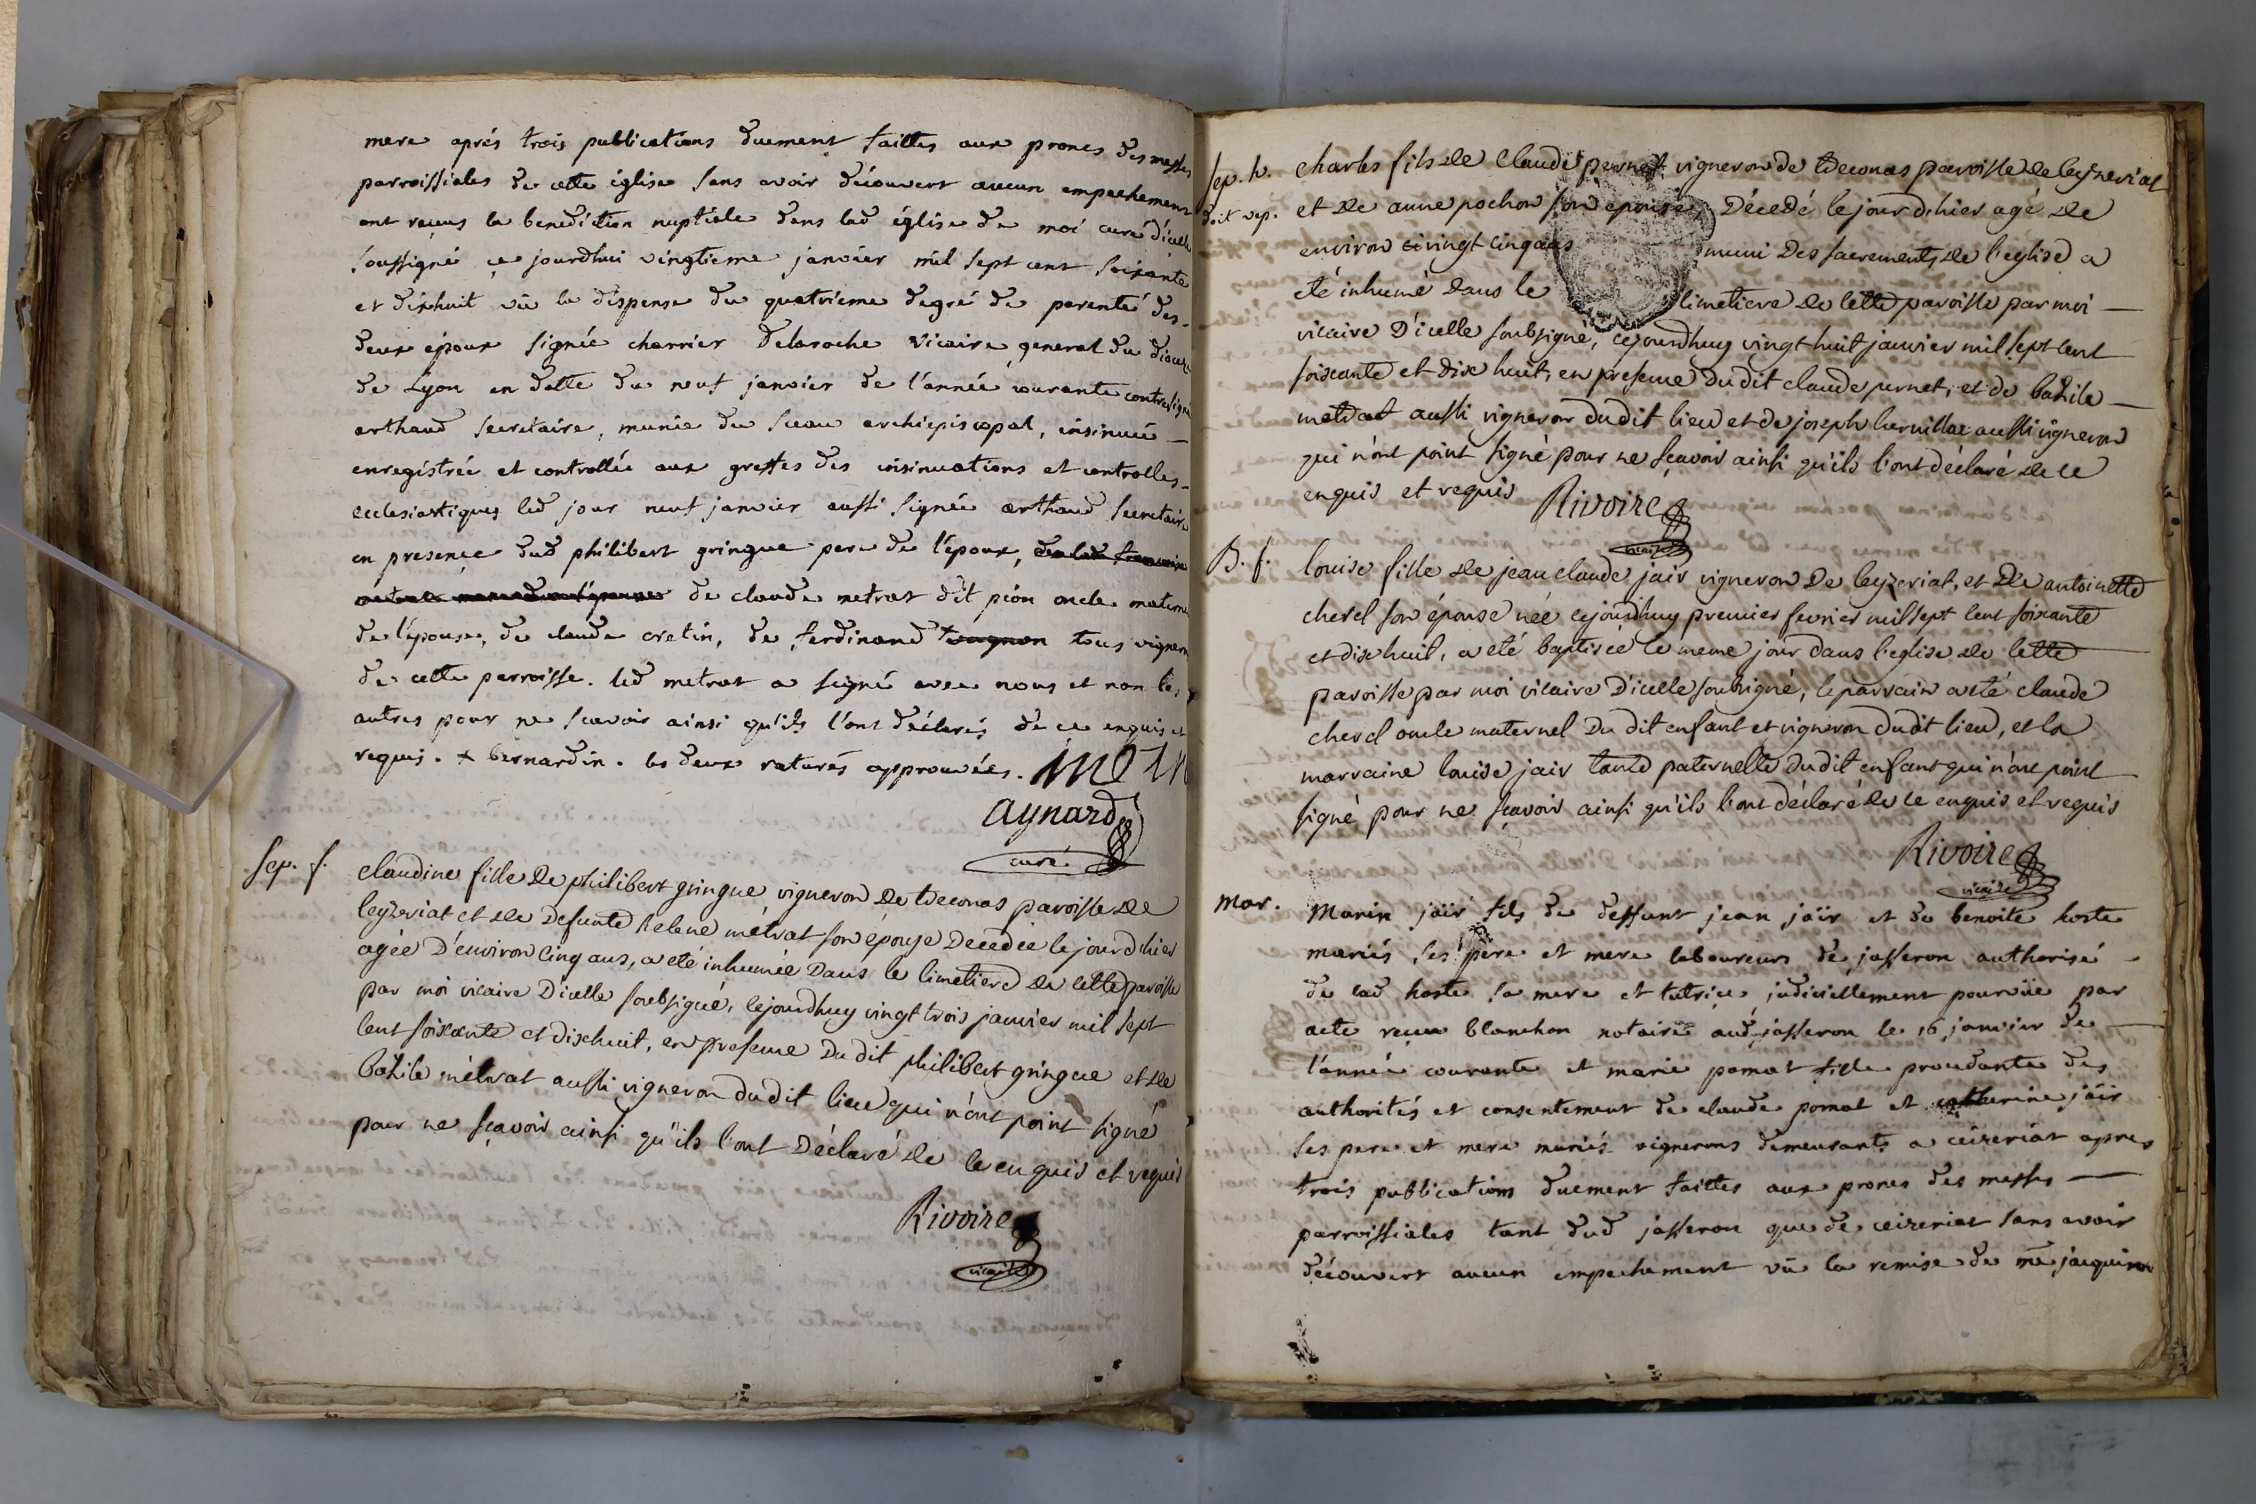 mere aprés trois publications duement faittes aux prones des messes
parroissiales de cette église sans avoir découvert aucun empechement
ont reçus la benediction nuptiale dans lad église de moi curé d'icelle
soussigné ce jourdhui vingtieme janvier mil sept cent soixante
et dixhuit vû la dispense du quatrieme degré de parenté des
deux époux signée charrier Delaroche Vicaire general du diocese
de Lyon en datte du neuf janvier de l'année courante contresigné
arthaud secretaire, munie du sceau archiepiscopal, insinuée
enregistrée et controllée aux greffes des insinuations et controlles
ecclesiastiques led jour neuf janvier aussi signée arthaud secretaire
en presence dud philibert gringue pere de l'époux,
de claude metrat dit pion oncle materne
de l'épouse, de claude cretin, de ferdinand tous vignerons
de cette parroisse. led metrat a signé avec nous et non les
autres pour ne scavoir ainsi qu'ils l'ont déclarés de ce enquis et
requis. x bernardin. les deux ratures approuvées.
Aynard
curé.
sep. f.
claudine fille de philibert gringue vigneron de
paroisse de
leyzeriat et de defunte helene métrat son épouse Decedée le jour d'hier
agée D'environ cinq ans, a eté inhumée Dans le cimetiere de cette paroisse
par moi vicaire D'icelle soubsigné, cejourdhuy vingt trois janvier mil sept
cent soixante et dixhuit, en presence Du dit philibert gringue et de
bazile métrat aussi vigneron dudit lieu qui n'ont point signé
pour ne sçavoir ainsi qu'ils l'ont Déclaré de ce enquis et requis
Rivoire
vicaire
sep. h.
charles fils de Claude pernet vigneron de
paroisse de leyzeriat
et de anne pochon son épouse, Décedé le jour d'hier agé de
environ vingt cinq ans muni Des sacrements de l'eglise a
eté inhumé Dans le cimetiere de cette paroisse par moi
vicaire D'icelle soubsigné, cejourdhuy vingt huit janvier mil sept cent
soixante et dix huit, en presence Dudit claude pernet, et de bazile
metrat aussi vigneron dudit lieu et de joseph aussi vigneron
qui n'ont point signé pour ne sçavoir ainsi qu'ils l'ont déclaré de ce
enquis et requis Rivoire
vicaire
B. f.
louise fille de jean claude jair vigneron De leyzeriat, et De antoinette
cherel son épouse née cejourdhuy premier fevrier mil sept cent soixante
et dix huit, a eté baptisée le meme jour Dans l'eglise de cette
paroisse par moi vicaire D'icelle soubsigné, le parrain a eté claude
cherel oncle maternel Du dit enfant et vigneron dudit lieu, et la
marraine louise jair tante paternelle Dudit enfant qui n'ont point
signé pour ne sçavoir ainsi qu'ils l'ont déclaré de ce enquis et requis
Rivoire
vicaire
mar.
Marin jaïr fils de deffunt jean jaïr et de benoite hoste
mariés ses pere et mere laboureurs de jasseron authorisé
de lad hoste sa mere et tutrice judiciellement pourvüe par
acte reçu blanchon notaire aud jasseron le 16 janvier de
l'année courante et marie pomat fille procedante des
authorités et consentement de claude pomat et catherine jaïr
ses pere et mere mariés vignerons demeurants a ceizeriat apres
trois publications duement faittes aux prones des messes
parroissiales tant dud jasseron que de ceizeriat sans avoir
découvert aucun empechement vû la remise de me jacquiron